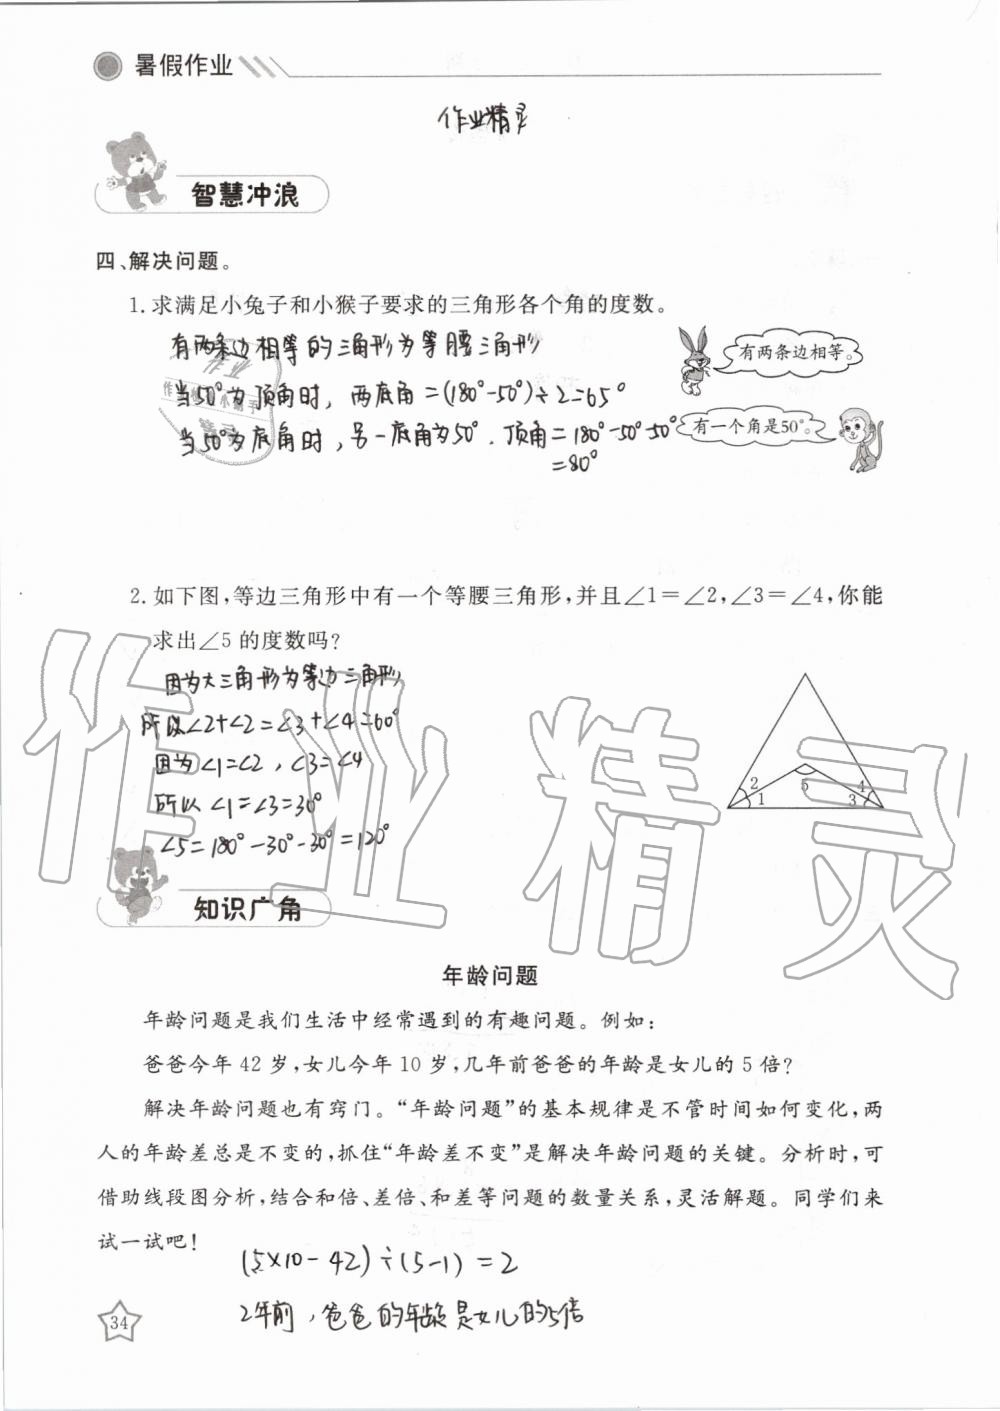 暑假作业
作业精灵
智慧冲浪
四、解决问题。
1.求满足小兔子和小猴子要求的三角形各个角的度数。
有两条边相等的三角形为等腰三角形
有两条边相等。
当50°为顶角时，两底角=(180°-50°)÷2=65°
当50°为底角时，另一底角为50°.顶角=180°-50°-50°
有一个角是50°。
=80°
2.如下图,等边三角形中有一个等腰三角形,并且∠1=∠2,∠3=∠4,你能
求出∠5的度数吗?
因为大三角形为等边三角形
所以∠2+∠2=∠3+∠4=60°
因为∠1=∠2，∠3=∠4
所以∠1=∠3=30°
∠5=180°-30°-30°=120°
2 5 4
1 3
作业精灵
知识广角
年龄问题
年龄问题是我们生活中经常遇到的有趣问题。例如:
爸爸今年42岁,女儿今年10岁,几年前爸爸的年龄是女儿的5倍?
解决年龄问题也有窍门。“年龄问题”的基本规律是不管时间如何变化,两
人的年龄差总是不变的,抓住“年龄差不变”是解决年龄问题的关键。分析时,可
借助线段图分析,结合和倍、差倍、和差等问题的数量关系,灵活解题。同学们来
试一试吧!
(5×10-42)÷(5-1)=2
2年前，爸爸的年龄是女儿的5倍
34